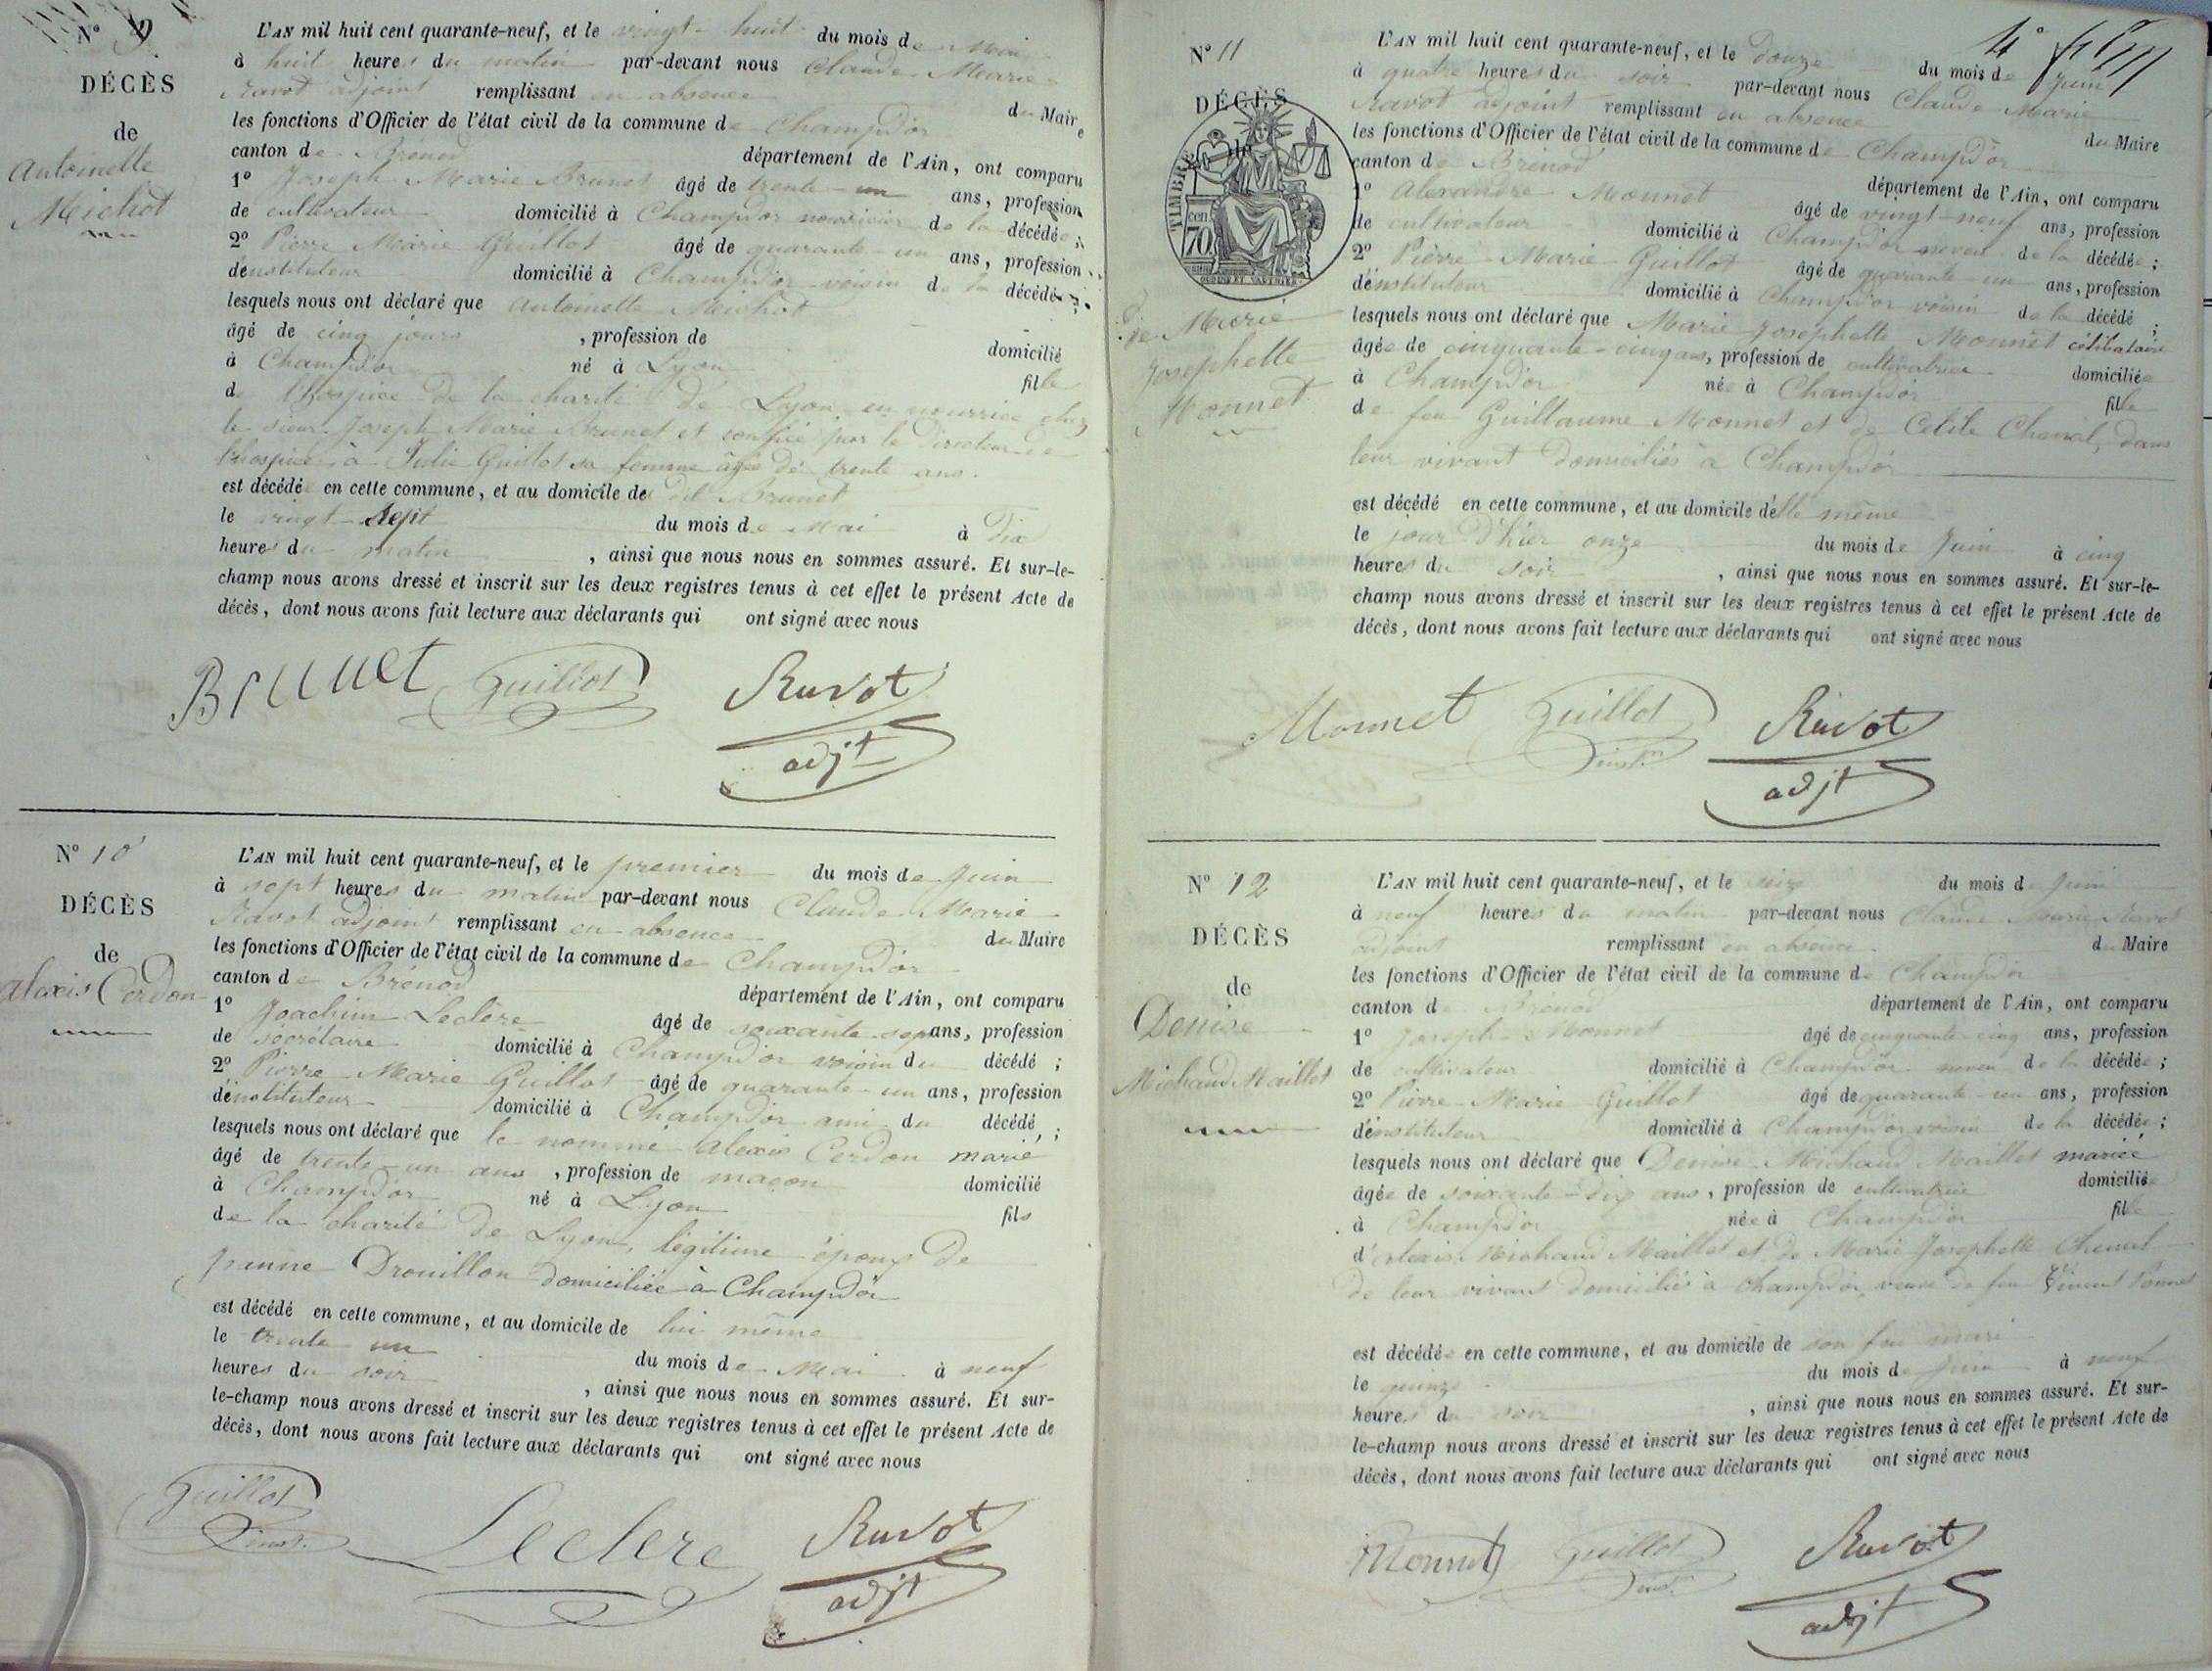 N° 9
DÉCÈS
de
Antoinette
Michot
L'AN mil huit cent quarante-neuf, et le vingt-huit du mois de Mai
à huit heures du matin par-devant nous Claude Marie
Ravot adjoint remplissant en absence du Maire
les fonctions d'Officier de l'état civil de la commune de Champdor
canton de Brénod département de l'Ain, ont comparu
1° Joseph Marie Brunet âgé de trente-un ans, profession
de cultivateur domicilié à Champdor nourricier de la décédée ;
2° Pierre Marie Guillot âgé de quarante-un ans, profession
d'instituteur domicilié à Champdor voisin de la décédée ;
lesquels nous ont déclaré que Antoinette Michot
âgé de cinq jours , profession de domicilié
à Champdor né à Lyon fille
de l'hospice de la charité de Lyon en nourrice chez
le sieur Joseph Marie Brunet et confiée par le Directeur de
l'hospice à Julie Guillot sa femme âgée de trente ans.
est décédé en cette commune, et au domicile de dit Brunet
le vingt-sept du mois de Mai à Dix
heures du matin , ainsi que nous nous en sommes assuré. Et sur-le-
champ nous avons dressé et inscrit sur les deux registres tenus à cet effet le présent Acte de
décès, dont nous avons fait lecture aux déclarants qui ont signé avec nous
Brunet Guillot Ravot
adjt
N° 10
DÉCÈS
de
Alexis Cerdon
L'AN mil huit cent quarante-neuf, et le premier du mois de Juin
à sept heures du matin par-devant nous Claude Marie
Ravot adjoint remplissant en absence du Maire
les fonctions d'Officier de l'état civil de la commune de Champdor
canton de Brénod département de l'Ain, ont comparu
1° Joachim Leclère âgé de soixante sept ans, profession
de sécrétaire domicilié à Champdor voisin du décédé ;
2° Pierre Marie Guillot âgé de quarante-un ans, profession
d'instituteur domicilié à Champdor ami du décédé ;
lesquels nous ont déclaré que le nommé Alexis Cerdon marié
âgé de trente-un ans , profession de maçon domicilié
à Champdor né à Lyon fils
de la charité de Lyon, légitime époux de
Jeanne Drouillon domiciliée à Champdor
est décédé en cette commune, et au domicile de lui même
le trente un du mois de Mai à neuf
heures du soir , ainsi que nous nous en sommes assuré. Et sur-
le-champ nous avons dressé et inscrit sur les deux registres tenus à cet effet le présent Acte de
décès, dont nous avons fait lecture aux déclarants qui ont signé avec nous
Guillot Leclere Ravot
inst. adjt
4°
N° 11
DÉCÈS
TIMBRE
70 cen
de Marie
Josephette
Monnet
L'AN mil huit cent quarante-neuf, et le douze du mois de Juin
à quatre heures du soir par-devant nous Claude Marie
Ravot adjoint remplissant en absence du Maire
les fonctions d'Officier de l'état civil de la commune de Champdor
canton de Brénod département de l'Ain, ont comparu
1° Alexandre Monnet âgé de vingt-neuf ans, profession
de cultivateur domicilié à Champdor neveu de la décédée ;
2° Pierre Marie Guillot âgé de quarante-un ans, profession
d'instituteur domicilié à Champdor voisin de la décédé ;
lesquels nous ont déclaré que Marie Josephette Monnet célibataire
âgée de cinquante-cinq ans, profession de cultivatrice domiciliée
à Champdor née à Champdor fille
de feu Guillaume Monnet et de Chenal, dans
leur vivant domiciliés à Champdor
est décédé en cette commune, et au domicile d'elle même
le jour d'hier onze du mois de Juin à cinq
heures du soir , ainsi que nous nous en sommes assuré. Et sur-le-
champ nous avons dressé et inscrit sur les deux registres tenus à cet effet le présent Acte de
décès, dont nous avons fait lecture aux déclarants qui ont signé avec nous
Monnet Guillot Ravot
inst. adjt
N° 12
DÉCÈS
de
Denise
Michaud Maillet
L'AN mil huit cent quarante-neuf, et le seize du mois de Juin
à neuf heures du matin par-devant nous Claude Marie Ravot
adjoint remplissant en absence du Maire
les fonctions d'Officier de l'état civil de la commune de Champdor
canton de Brénod département de l'Ain, ont comparu
1° Joseph Monnet âgé de cinquante-cinq ans, profession
de cultivateur domicilié à Champdor neveu de la décédée ;
2° Pierre Marie Guillot âgé de quarante-un ans, profession
d'instituteur domicilié à Champdor voisin de la décédée ;
lesquels nous ont déclaré que Denise Michaud Maillet mariée
âgée de soixante-dix ans, profession de cultivatrice domiciliée
à Champdor née à Champdor fille
d'Alexis Michaud Maillet et de Marie Josephette Chenal
de leur vivant domiciliés à Champdor, veuve de feu Vincent
est décédée en cette commune, et au domicile de son feu mari
le quinze du mois de Juin à neuf
heures du soir , ainsi que nous nous en sommes assuré. Et sur-
le-champ nous avons dressé et inscrit sur les deux registres tenus à cet effet le présent Acte de
décès, dont nous avons fait lecture aux déclarants qui ont signé avec nous
Monnet Guillot Ravot
inst. adjt